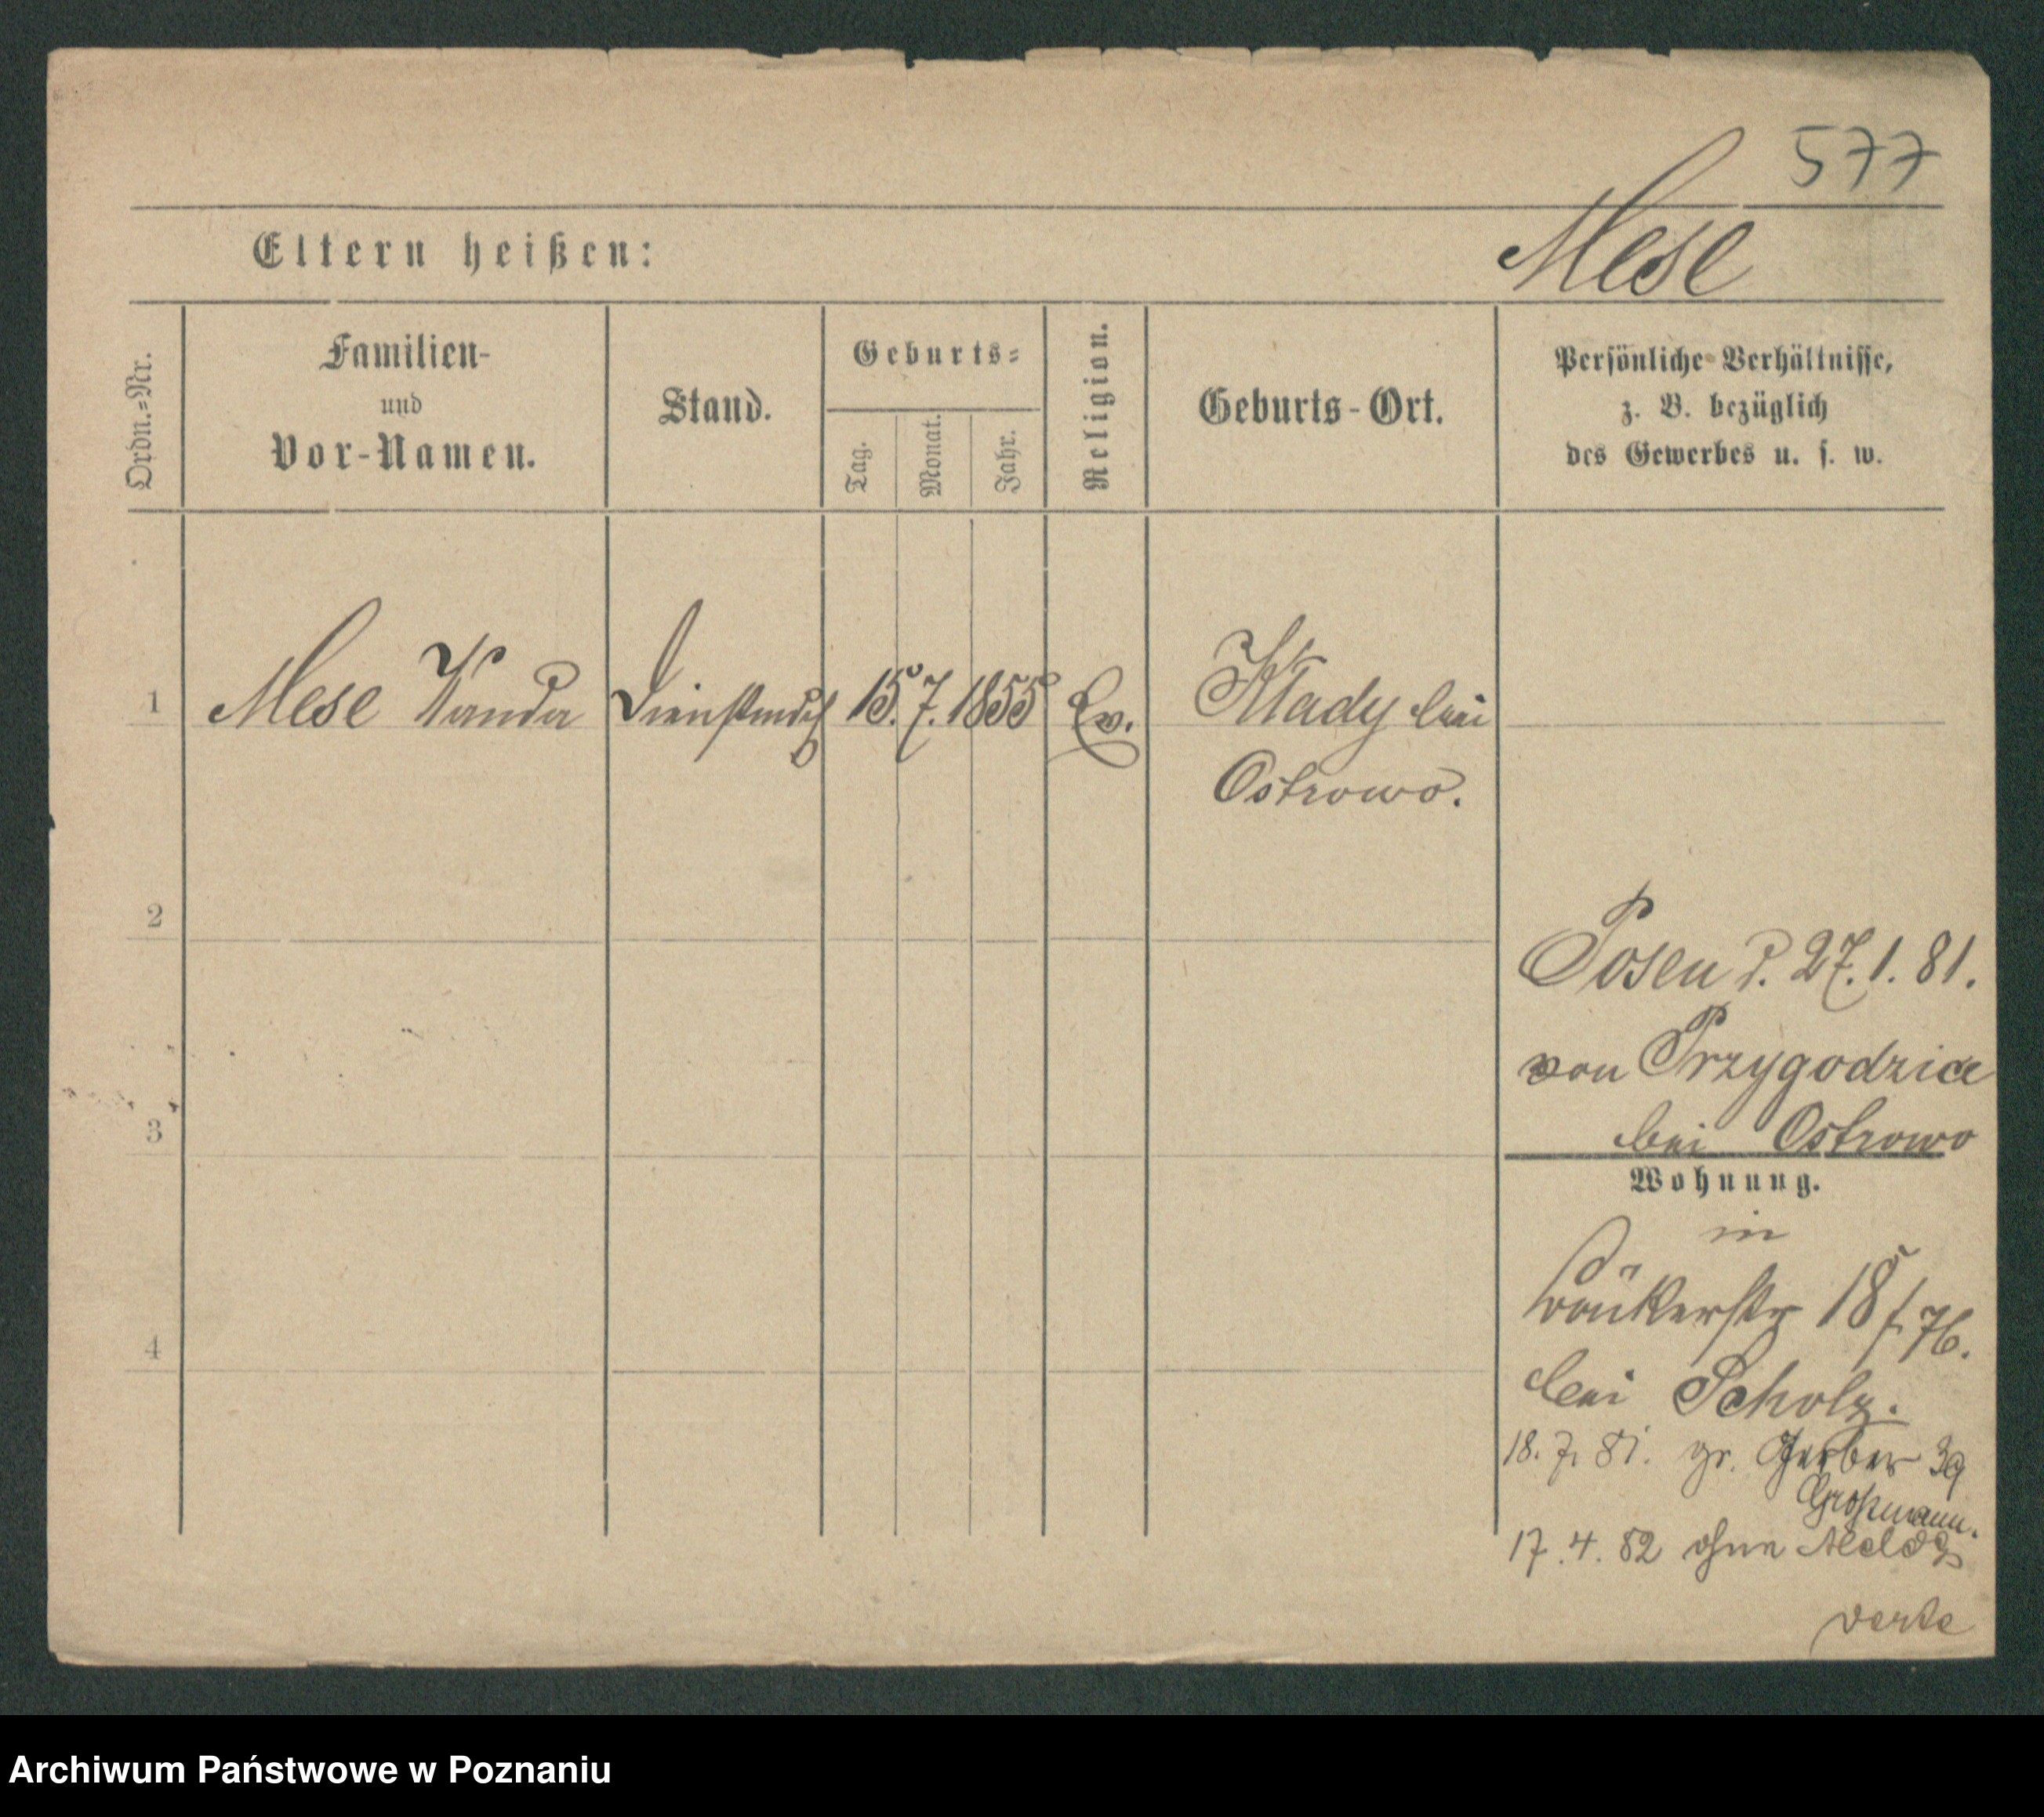 577
Mese
Eltern heißen:
Ordn.=Nr.
Familien-
und
Vor-Namen.
Stand.
Geburts=
Tag.
Monat.
Jahr.
Religion.
Geburts-Ort.
Persönliche Verhältnisse,
z. B. bezüglich
des Gewerbes u. s. w.
1 Mese Wanda Dienstmdch 15. 7. 1855 Ev. Kłady bei
Ostrowo.
2
Posen d. 27. 1. 81.
von Przygodzice
3
bei Ostrowo
Wohnung.
in
18
4
bei Scholz.
18. 7. 81. gr. Gerber 39
Großmann.
17. 4. 82 ohne Meldg
verte
Archiwum Państwowe w Poznaniu